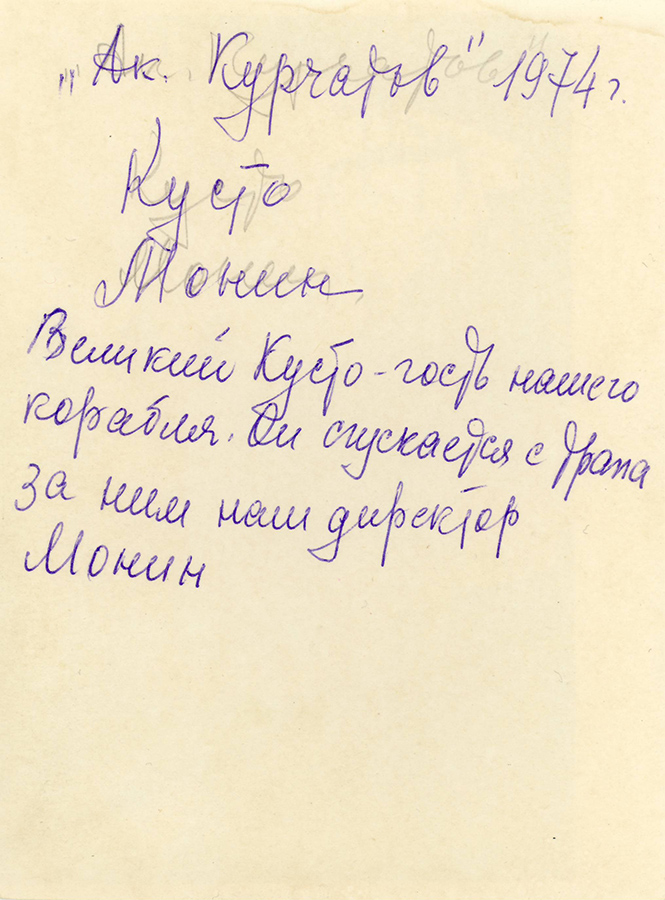 „Ак. Курчатов" 1974 г.
Кусто
Монин
Великий Кусто - гость нашего
корабля. Он спускается с трапа
за ним наш директор
Монин